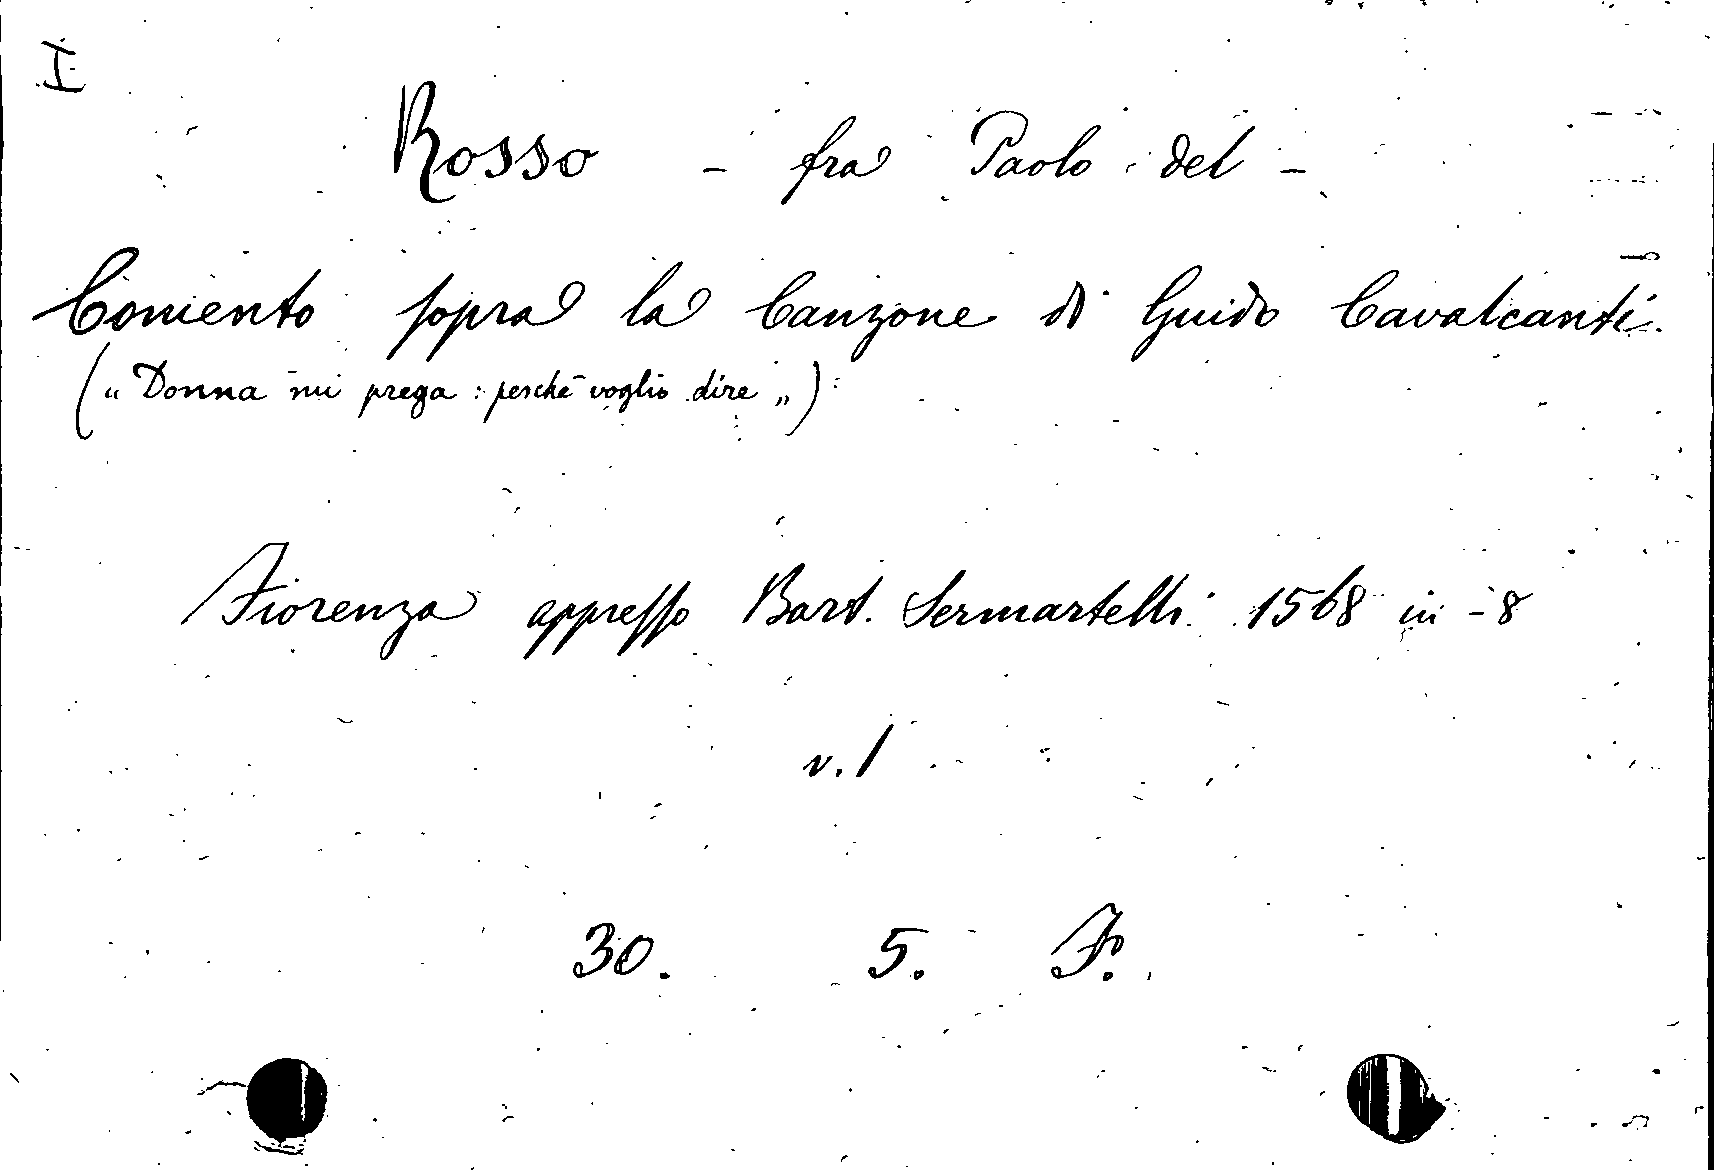 I
Rosso - fra Paolo del -
Comento sopra la Canzone di Guido Cavalcanti.
(„ Donna mi prega : perchè voglio dire „)
Fiorenza appresso Bart. Sermartelli 1568 in -8
v. 1
30. 5. F.